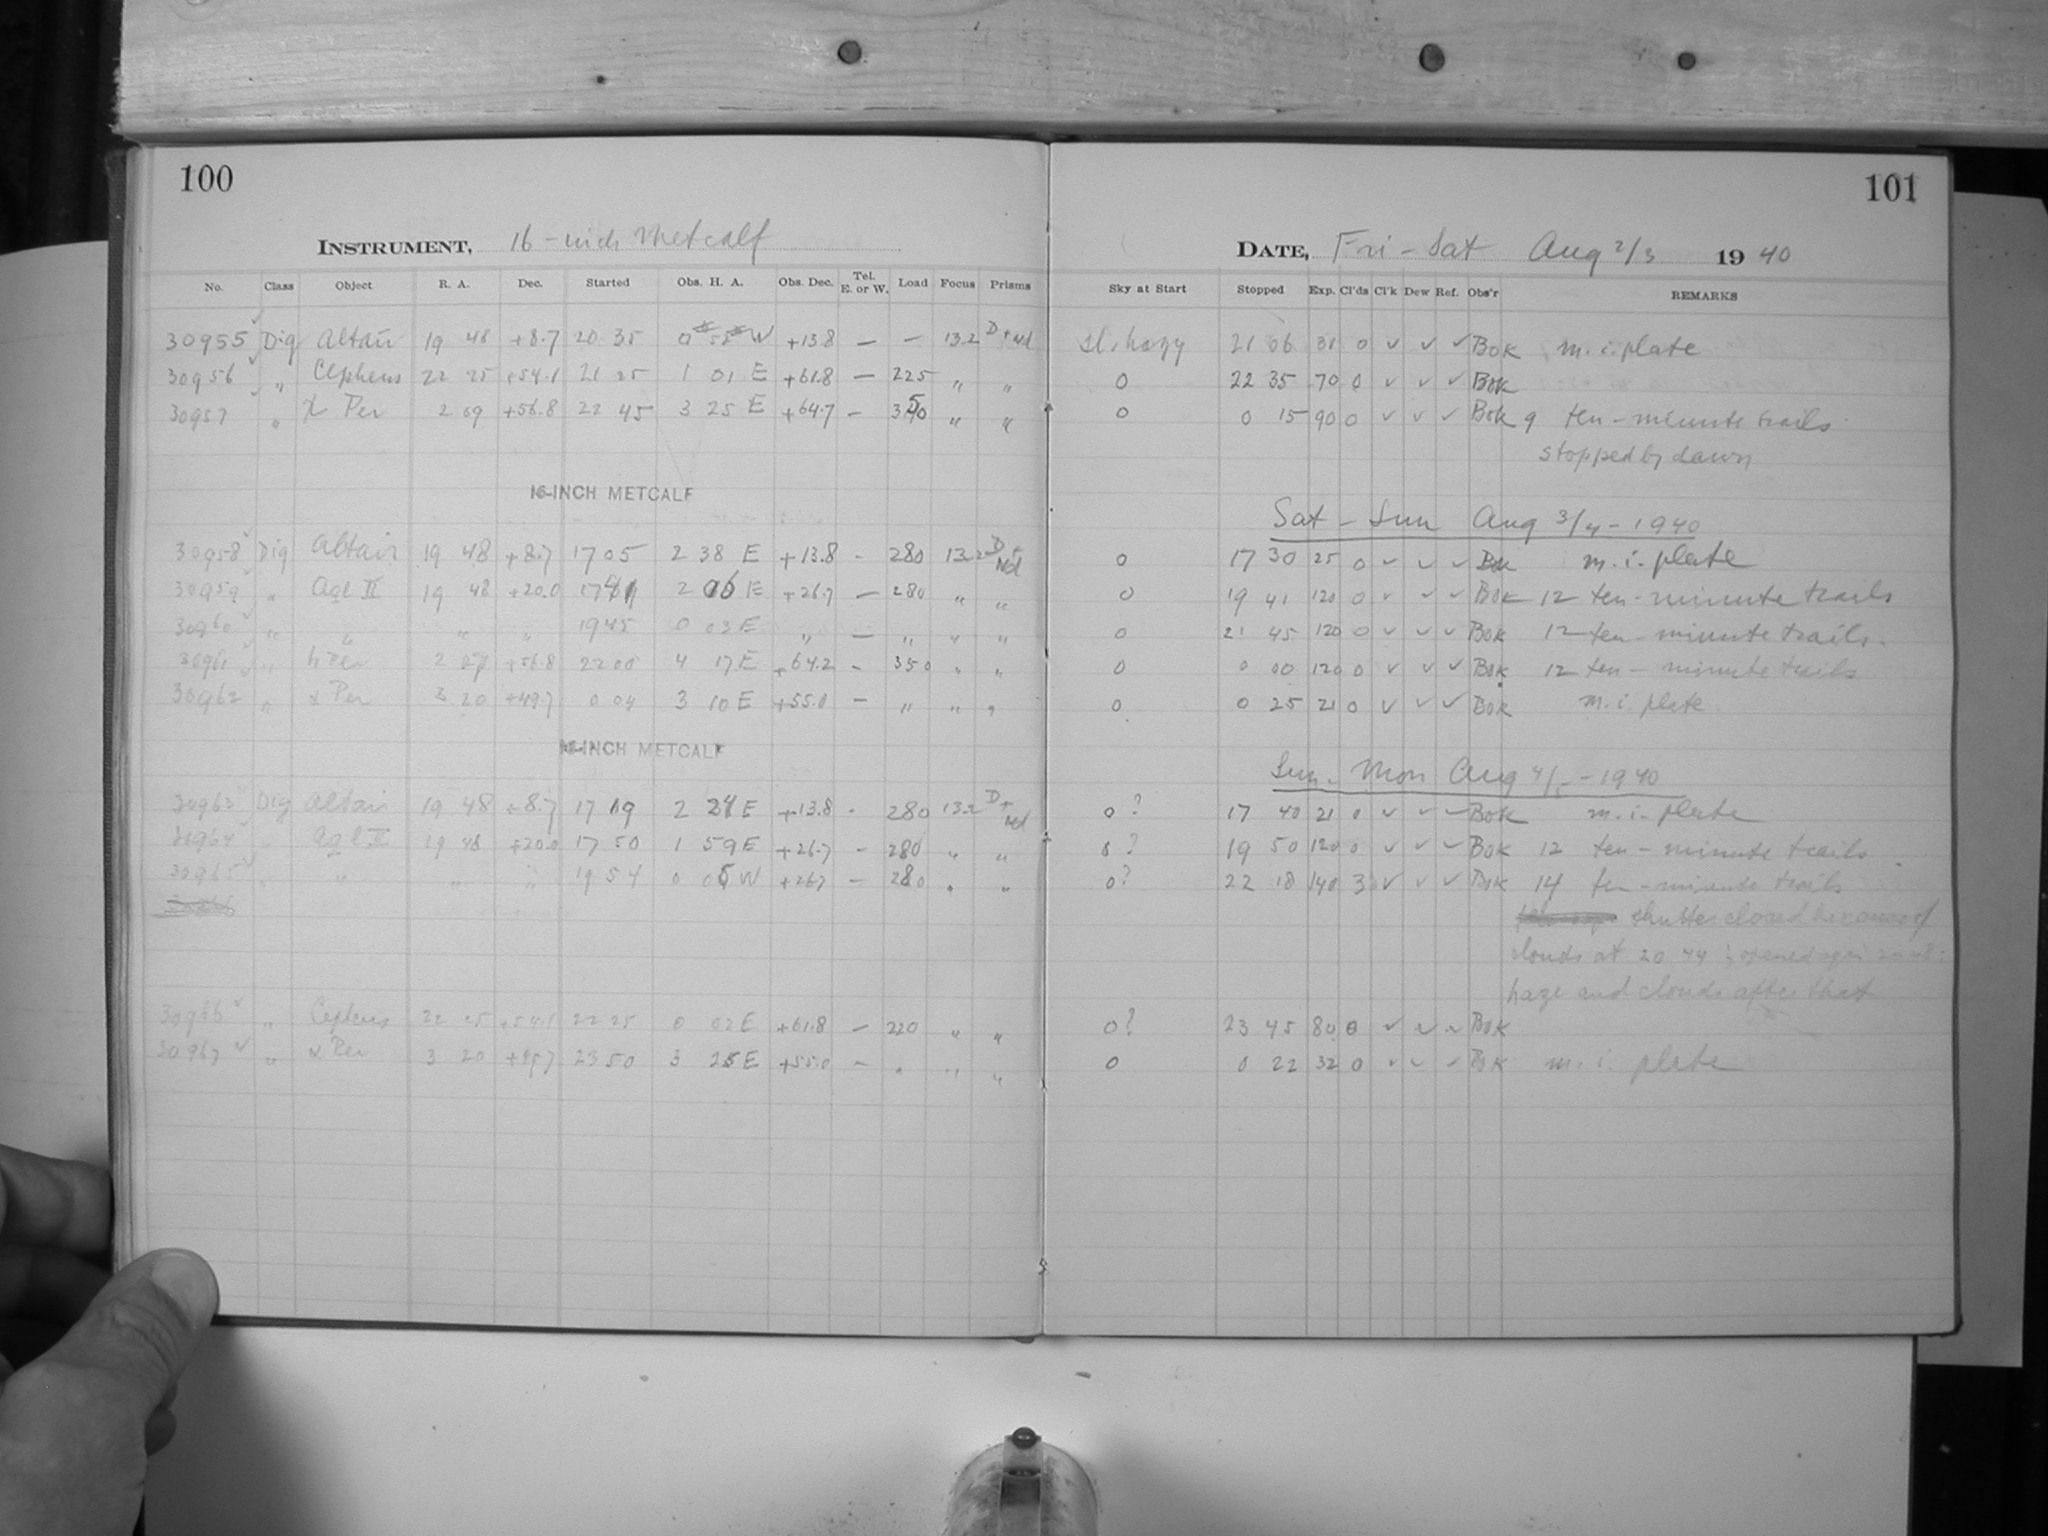 100
INSTRUMENT, 16-inch Metcalf
No. Class Object R. A. Dec. Started Obs. H. A. Obs. Dec. Tel. E. or W. Load Focus Prisms
30955 Dig Altair 19 48 +8.7 20 35 0 W +13.8 — — 13.2 D +
30956 " Cepheus 22 25 +54.1 21 25 1 01 E +61.8 — 225 " "
30957 " χ Per 2 09 +56.8 22 45 3 25 E +64.7 — " "
16-INCH METCALF
30958 Dig Altair 19 48 +8.7 17 05 2 38 E +13.8 - 280 13.2 D +
30959 " Aql II 19 48 +20.0 17 2 E +26.7 — 280 " "
30960 " " " " 19 45 0 03 E " — " " "
30961 " 2 +56.8 22 00 4 17 E +64.2 - 350 " "
30962 " α Per 3 20 +49.7 0 04 3 10 E +55.0 — " " "
16-INCH METCALF
30963 Dig Altair 19 48 +8.7 17 19 2 E +13.8 - 280 13.2 D +
30964 " Aql II 19 48 +20.0 17 50 1 59 E +26.7 — 280 " "
30965 " " " " 19 54 0 W +26.7 — 280 " "
30966 " Cepheus 22 25 +54.1 22 25 0 02 E +61.8 — 220 " "
30967 " α Per 3 20 23 50 3 E +55.0 — " " "
101
DATE, Fri - Sat Aug 2/3 19 40
Sky at Start Stopped Exp. Cl'ds Cl'k Dew Ref. Obs'r REMARKS
sl. hazy 21 06 31 0 ✓ ✓ ✓ Bok m.i. plate
0 22 35 70 0 ✓ ✓ ✓ Bok
0 0 15 90 0 ✓ ✓ ✓ Bok 9 ten-minute trails
stopped by dawn
Sat - Sun Aug 3/4 - 1940
0 17 30 25 0 ✓ ✓ ✓ Bok m.i. plate
0 19 41 120 0 ✓ ✓ ✓ Bok 12 ten-minute trails
0 21 45 120 0 ✓ ✓ ✓ Bok 12 ten-minute trails.
0 0 00 120 0 ✓ ✓ ✓ Bok 12 ten-minute trails
0 0 25 21 0 ✓ ✓ ✓ Bok m.i. plate.
Sun - Mon Aug 4/ - 1940
0? 17 40 21 0 ✓ ✓ ✓ Bok m.i. plate
0? 19 50 120 0 ✓ ✓ ✓ Bok 12 ten-minute trails
0? 22 18 140 3 ✓ ✓ ✓ Bok 14 ten-minute trails
shutter closed because of
clouds at 20 44; opened again
haze and clouds after that
0? 23 45 80 0 ✓ ✓ ✓ Bok
0 0 22 32 0 ✓ ✓ ✓ Bok m.i. plate